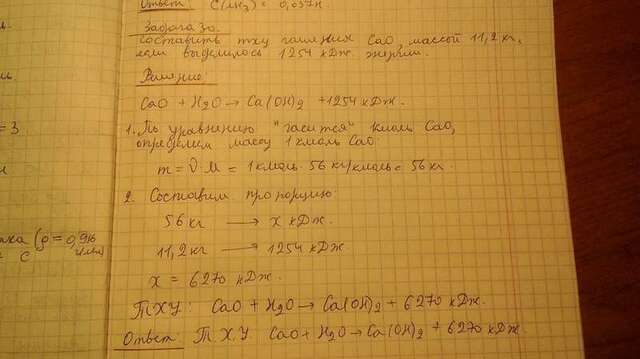 Ответ: C(NH₃) = 0,057н
Задача 30.
Составить тху гашения CaO массой 11,2 кг,
если выделилось 1254 кДж энергии.
Решение:
CaO + H₂O → Ca(OH)₂ + 1254 кДж.
1. По уравнению "гасится" кмоль CaO,
определяем массу 1 кмоль CaO:
m = ν · M = 1 кмоль · 56 кг/кмоль = 56 кг.
2. Составим пропорцию:
56 кг → x кДж.
11,2 кг → 1254 кДж.
x = 6270 кДж.
ТХУ: CaO + H₂O → Ca(OH)₂ + 6270 кДж.
Ответ: ТХУ CaO + H₂O → Ca(OH)₂ + 6270 кДж.
= 3
(ρ = 0,916
г/мл)
с